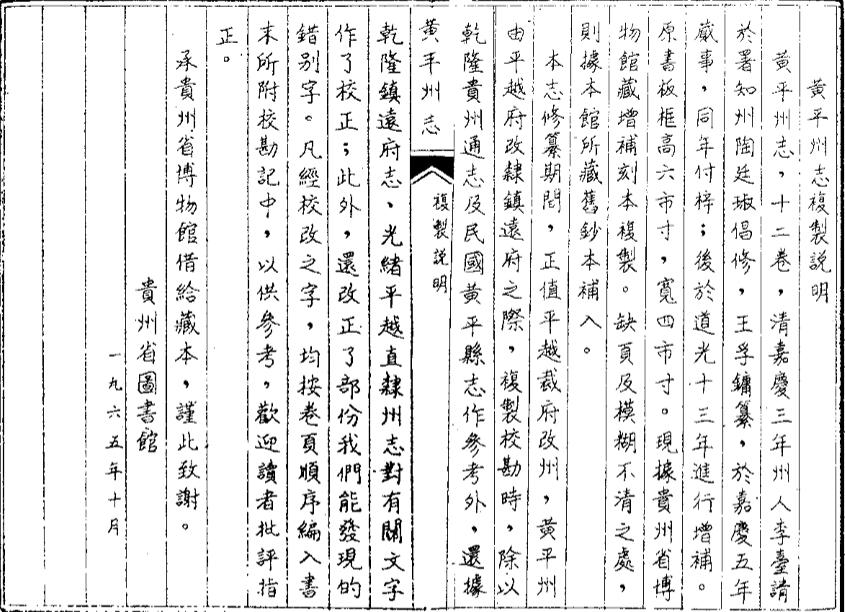 黃平州志複製説明
黃平州志，十二卷，清嘉慶三年州人李臺請
於署知州陶廷琡倡修，王孚鏞纂，於嘉慶五年
蕆事，同年付梓；後於道光十三年進行增補。
原書板框高六市寸，寬四市寸。現據貴州省博
物館藏增補刻本複製。缺頁及模糊不清之處，
則據本館所藏舊鈔本補入。
本志修纂期間，正值平越裁府改州，黃平州
由平越府改隸鎮遠府之際，複製校勘時，除以
乾隆貴州通志及民國黃平縣志作參考外，還據
黃平州志
複製説明
乾隆鎮遠府志、光緒平越直隸州志對有關文字
作了校正；此外，還改正了部份我們能發現的
錯別字。凡經校改之字，均按卷頁順序編入書
末所附校勘記中，以供參考，歡迎讀者批評指
正。
承貴州省博物館借給藏本，謹此致謝。
貴州省圖書館
一九六五年十月